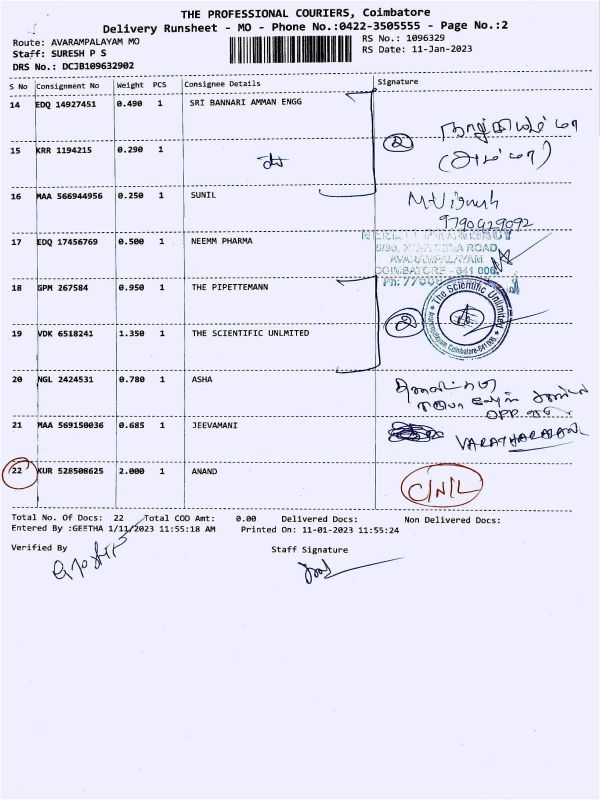 THE PROFESSIONAL COURIERS, Coimbatore
Delivery Runsheet - MO - Phone No.:0422-3505555 - Page No.:2
Route: AVARAMPALAYAM MO
RS No.: 1096329
Staff: SURESH P S
RS Date: 11-Jan-2023
DRS No.: DCJB109632902
S No Consignment No Weight PCS Consignee Details Signature
14 EDQ 14927451 0.490 1 SRI BANNARI AMMAN ENGG
②
15 KRR 1194215 0.290 1
(அம்மா)
16 MAA 566944956 0.250 1 SUNIL
M-Vignesh
9790429092
17 EDQ 17456769 0.500 1 NEEMM PHARMA
ROAD,
AVARAMPALAYAM
COIMBATORE - 641 006
18 GPM 267584 0.950 1 THE PIPETTEMANN
②
The Scientific Unlimited
Avarampalayam Coimbatore-641 006
19 VDK 6518241 1.350 1 THE SCIENTIFIC UNLMITED
20 NGL 2424531 0.780 1 ASHA
OPP
21 MAA 569150036 0.685 1 JEEVAMANI
VARATHARAJAN
22 KUR 528508625 2.000 1 ANAND
C/N/L
Total No. Of Docs: 22 Total COD Amt: 0.00 Delivered Docs: Non Delivered Docs:
Entered By :GEETHA 1/11/2023 11:55:18 AM Printed On: 11-01-2023 11:55:24
Verified By Staff Signature